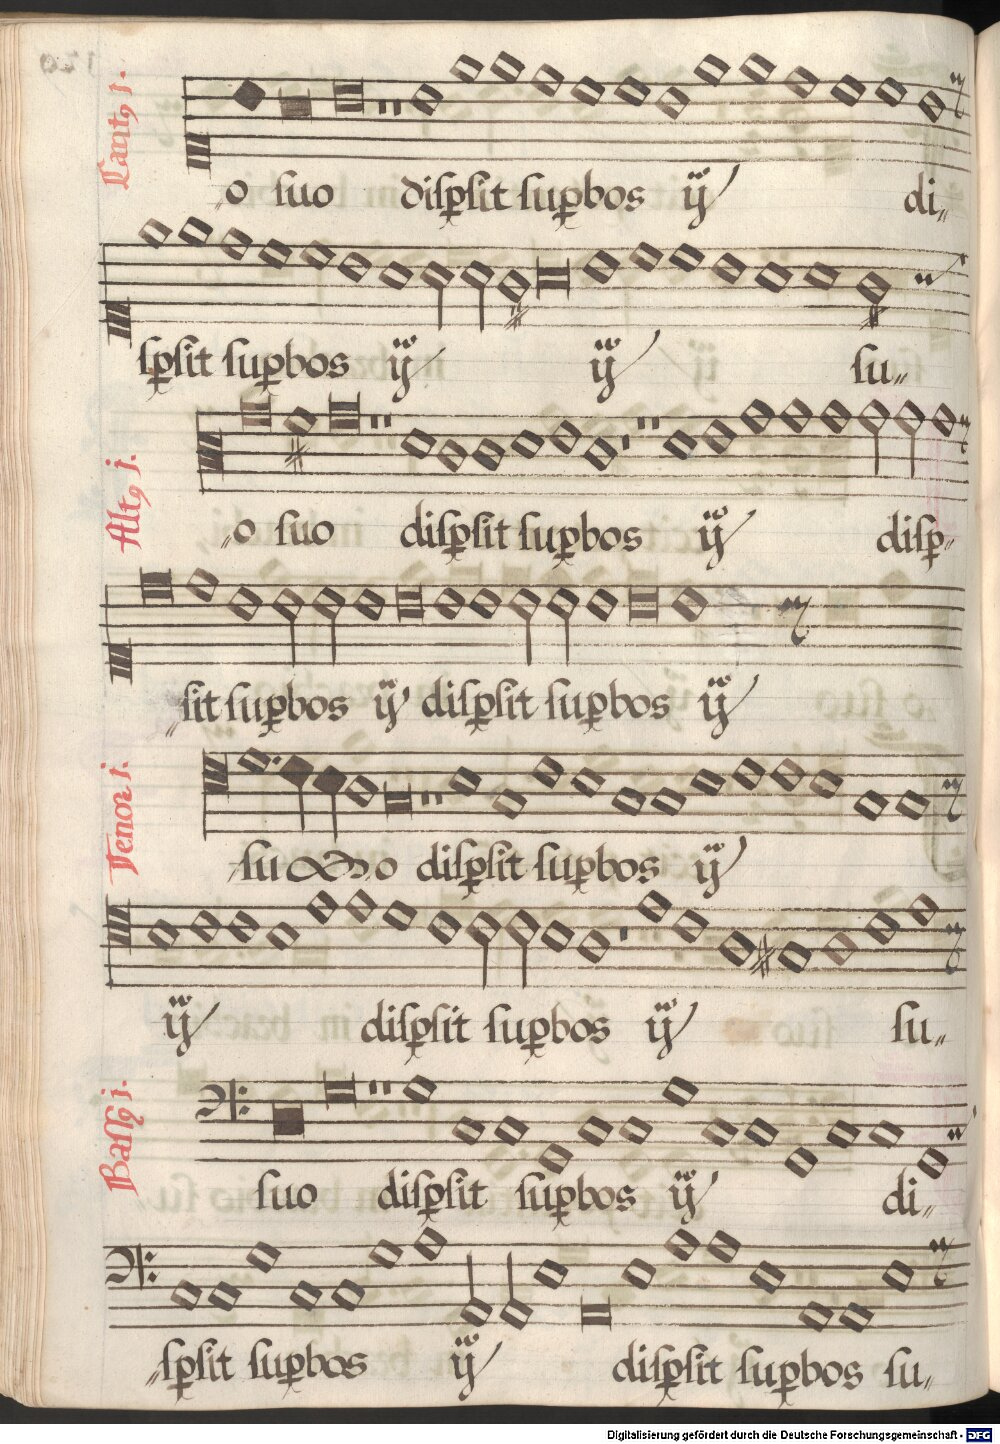 Cantꝰ j.
o suo diſꝑſit ſuꝑbos ij di„
ſꝑſit ſuꝑbos ij ij ſu„
Altꝰ j.
„o suo diſꝑſit ſuꝑbos ij diſꝑ„
„ſit ſuꝑbos ij diſꝑſit ſuꝑbos ij
Tenor j.
ſu o diſꝑſit ſuꝑbos ij
ij diſꝑſit ſuꝑbos ij ſu„
Baſſꝰ j.
ſuo diſꝑſit ſuꝑbos ij di„
„ſꝑſit ſuꝑbos ij diſꝑſit ſuꝑbos ſu„
Digitalisierung gefördert durch die Deutsche Forschungsgemeinschaft - DFG